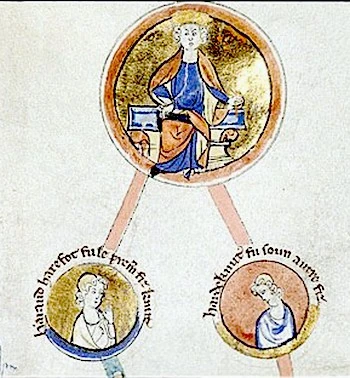 haraud harefot fu le prem fiz knute
hardeknut fu soun autre fiz